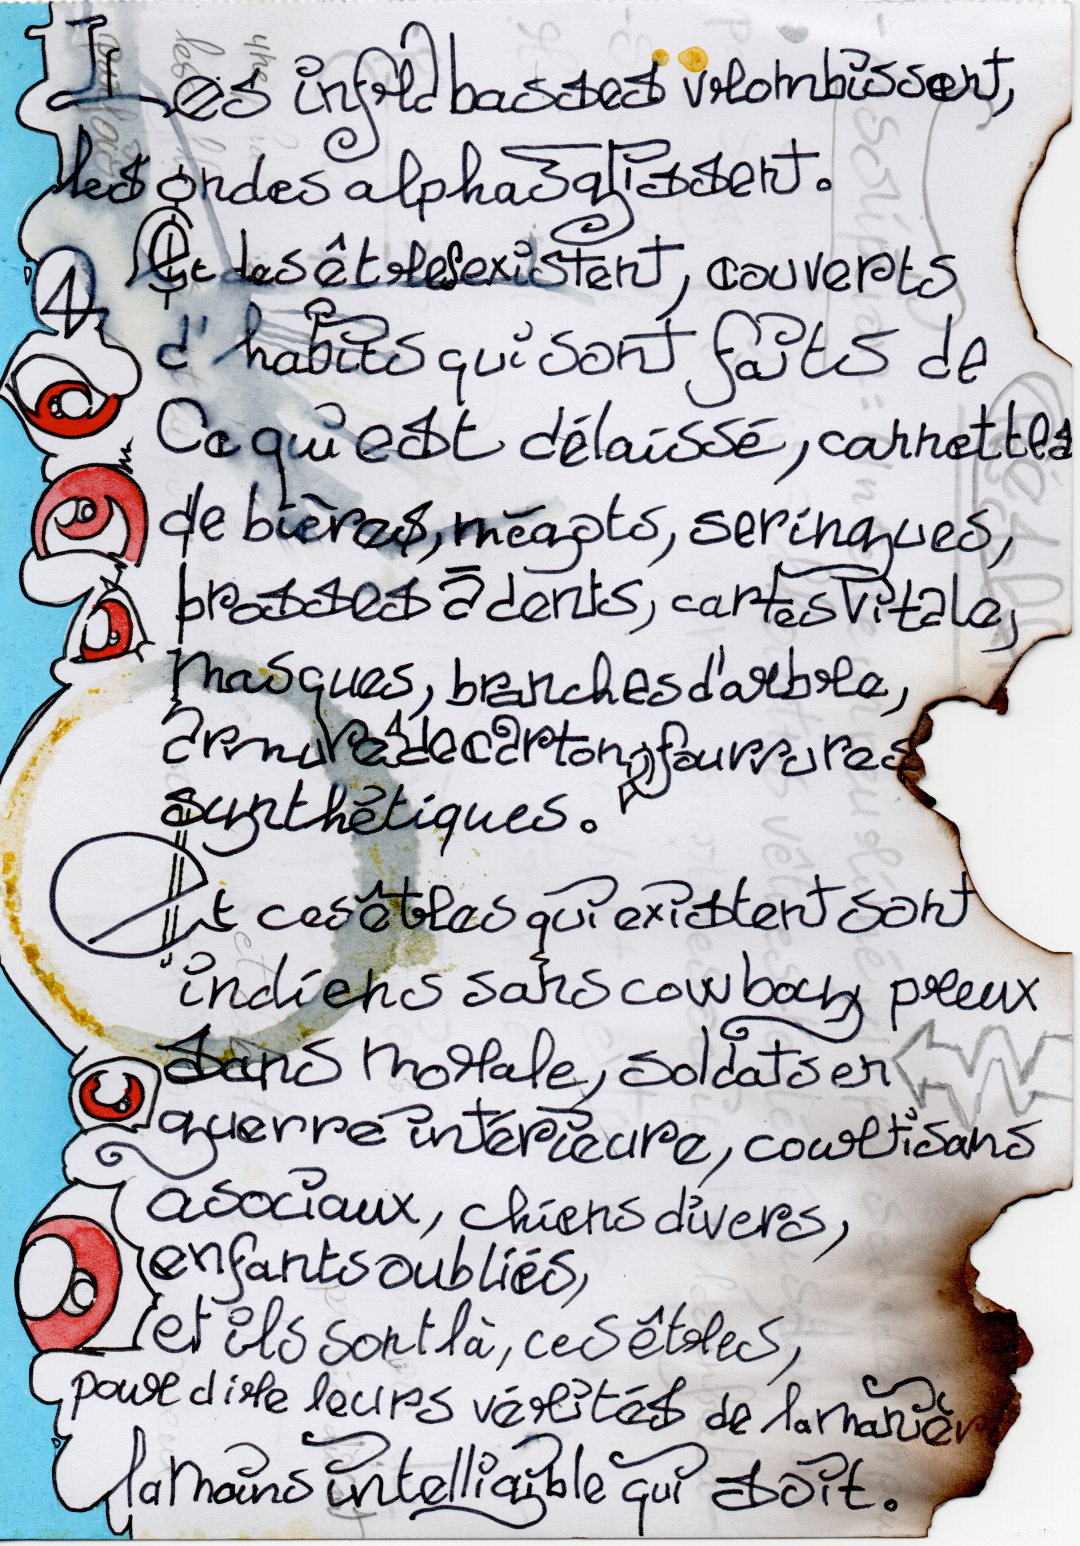 Les infra basses vrombissent,
les ondes alphas glissent.
Et des êtres existent, couverts
d'habits qui sont faits de
Ce qui est délaissé, cannettes
de bières, mégots, seringues,
brosses à dents, cartes Vitale,
masques, branches d'arbre,
armures de carton, fourrures
synthétiques.
Et ces êtres qui existent sont
indiens sans cowboy, preux
sans morale, soldats en
guerre intérieure, courtisans
asociaux, chiens divers,
enfants oubliés,
et ils sont là, ces êtres,
pour dire leurs vérités de la manièr
la moins intelligible qui soit.